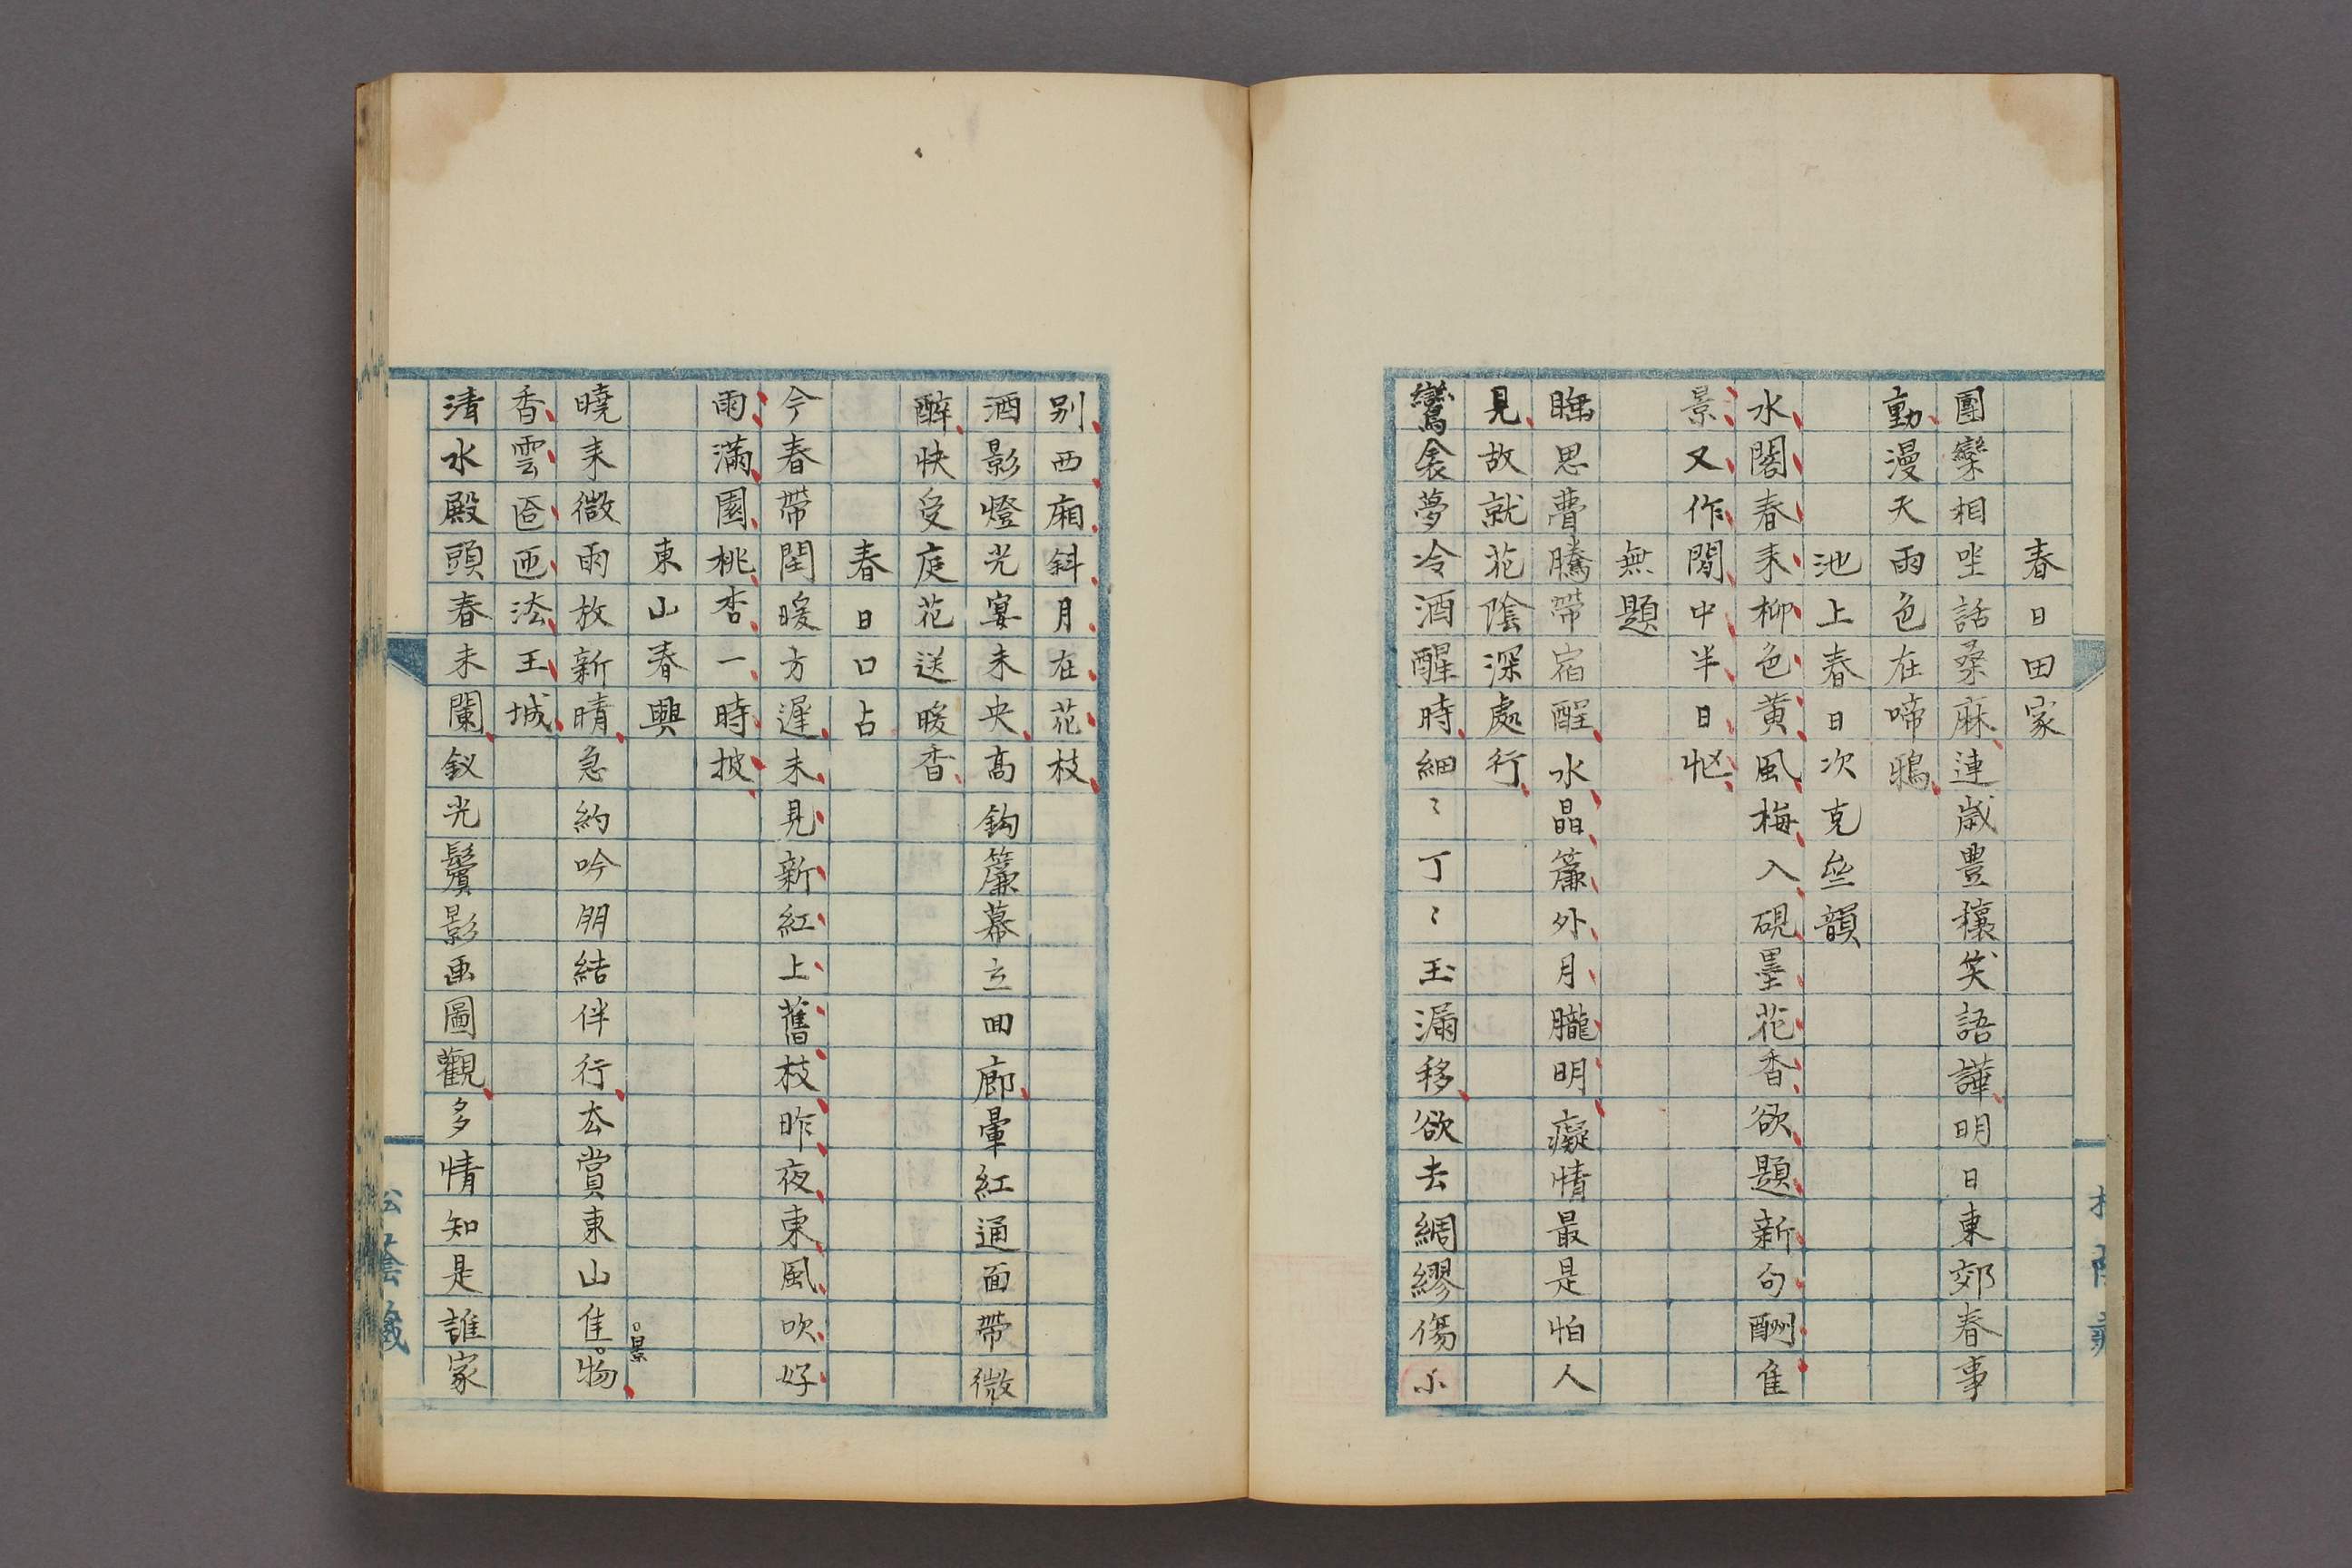 春日田家
團欒相坐話桑麻連歲豊穰笑語譁明日東郊春事
動漫天雨色在啼鴉
池上春日次克堂韻
水閣春来柳色黄風梅入硯墨花香欲題新句酬隹
景又作閒中半日忙
無題
睡思曹騰帶宿酲水晶簾外月朧明癡情最是怕人
見故就花陰深處行
鸞衾夢冷酒醒時細〻丁〻玉漏移欲去綢繆傷小
别西廂斜月在花枝
酒影燈光宴未央高鈎簾幕立回廊暈紅通面帶微
醉快受庭花送暖香
春日口占
今春帶閏暖方遲未見新紅上舊枝昨夜東風吹好
雨滿園桃杏一時披
東山春興
曉来微雨放新晴急約吟朋結伴行去賞東山隹物
景
香雲匝匝法王城
清水殿頭春未闌釵光鬢影画圖觀多情知是誰家
松蔭